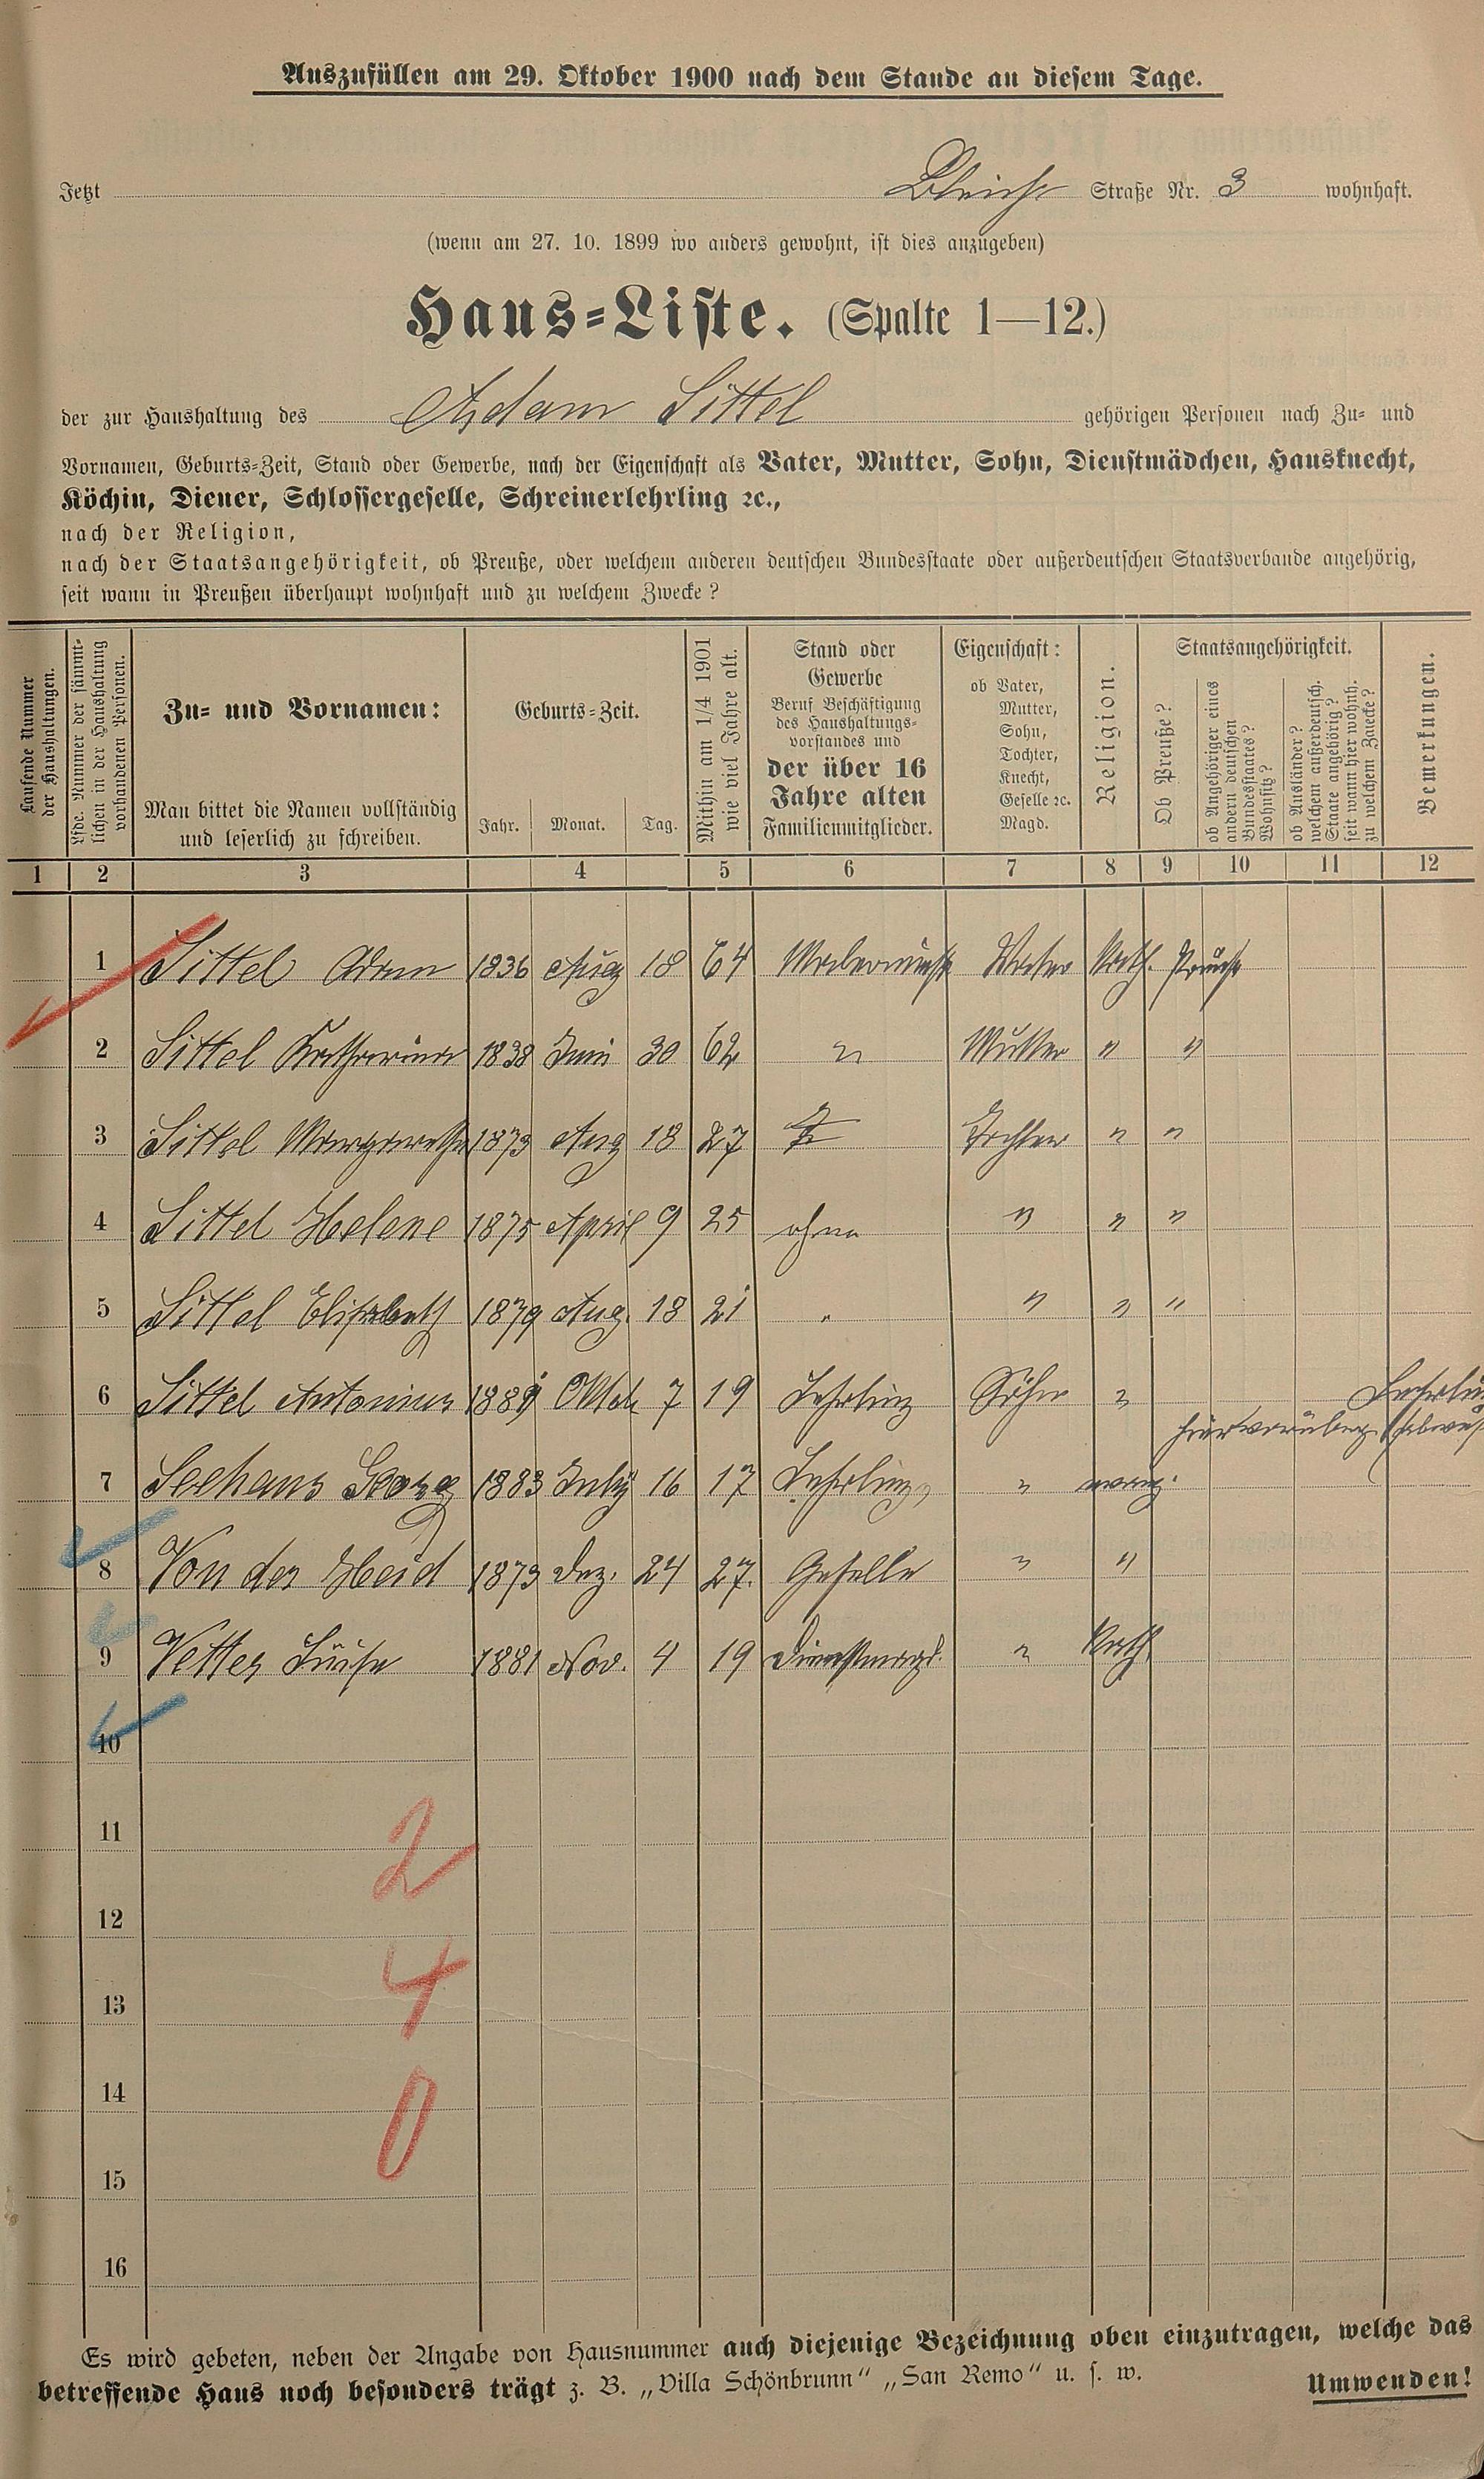 Auszufüllen am 29. Oktober 1900 nach dem Stande an diesem Tage.
Jetzt Bleich Straße Nr. 3 wohnhaft.
(wenn am 27. 10. 1899 wo anders gewohnt, ist dies anzugeben)
Haus-Liste. (Spalte 1—12.)
der zur Haushaltung des Adam Sittel gehörigen Personen nach Zu- und
Vornamen, Geburts-Zeit, Stand oder Gewerbe, nach der Eigenschaft als Vater, Mutter, Sohn, Dienstmädchen, Hausknecht,
Köchin, Diener, Schlossergeselle, Schreinerlehrling ꝛc.,
nach der Religion,
nach der Staatsangehörigkeit, ob Preuße, oder welchem anderen deutschen Bundesstaate oder außerdeutschen Staatsverbande angehörig,
seit wann in Preußen überhaupt wohnhaft und zu welchem Zwecke?
Laufende Nummer der Haushaltungen.
Lfde. Nummer der sämmtlichen in der Haushaltung vorhandenen Personen.
Zu- und Vornamen:
Man bittet die Namen vollständig
und leserlich zu schreiben.
Geburts-Zeit.
Jahr. Monat. Tag.
Mithin am 1/4 1901 wie viel Jahre alt.
Stand oder
Gewerbe
Beruf Beschäftigung
des Haushaltungs-
vorstandes und
der über 16
Jahre alten
Familienmitglieder.
Eigenschaft:
ob Vater,
Mutter,
Sohn,
Tochter,
Knecht,
Geselle ꝛc.
Magd.
Religion.
Staatsangehörigkeit.
Ob Preuße?
ob Angehöriger eines andern deutschen Bundesstaates? Wohnsitz?
ob Ausländer? welchem außerdeutsch. Staate angehörig? seit wann hier wohnh. zu welchem Zwecke?
Bemerkungen.
1 2 3 4 5 6 7 8 9 10 11 12
1 Sittel Adam 1836 Aug 18 64 Vater Kath. Preuße
2 Sittel Katharina 1838 Juni 30 62 " Mutter " "
3 Sittel Margaretha 1873 Aug 18 27 Tochter " "
4 Sittel Helene 1875 April 9 25 ohne " " "
5 Sittel Elisabeth 1879 Aug. 18 21 " " " "
6 Sittel Antonius 1881 Oktob 7 19 Lehrling Sohn "
7 Seehaus Georg 1883 July 16 17 Lehrling " evang.
8 Von der Heid 1873 Dez. 24 27. Geselle " "
9 Vetter Luise 1881 Nov. 4 19 Dienstmagd. " Kath
10
11
12
13
14
15
16
2
4
0
Es wird gebeten, neben der Angabe von Hausnummer auch diejenige Bezeichnung oben einzutragen, welche das
betreffende Haus noch besonders trägt z. B. „Villa Schönbrunn“ „San Remo“ u. s. w.
Umwenden!